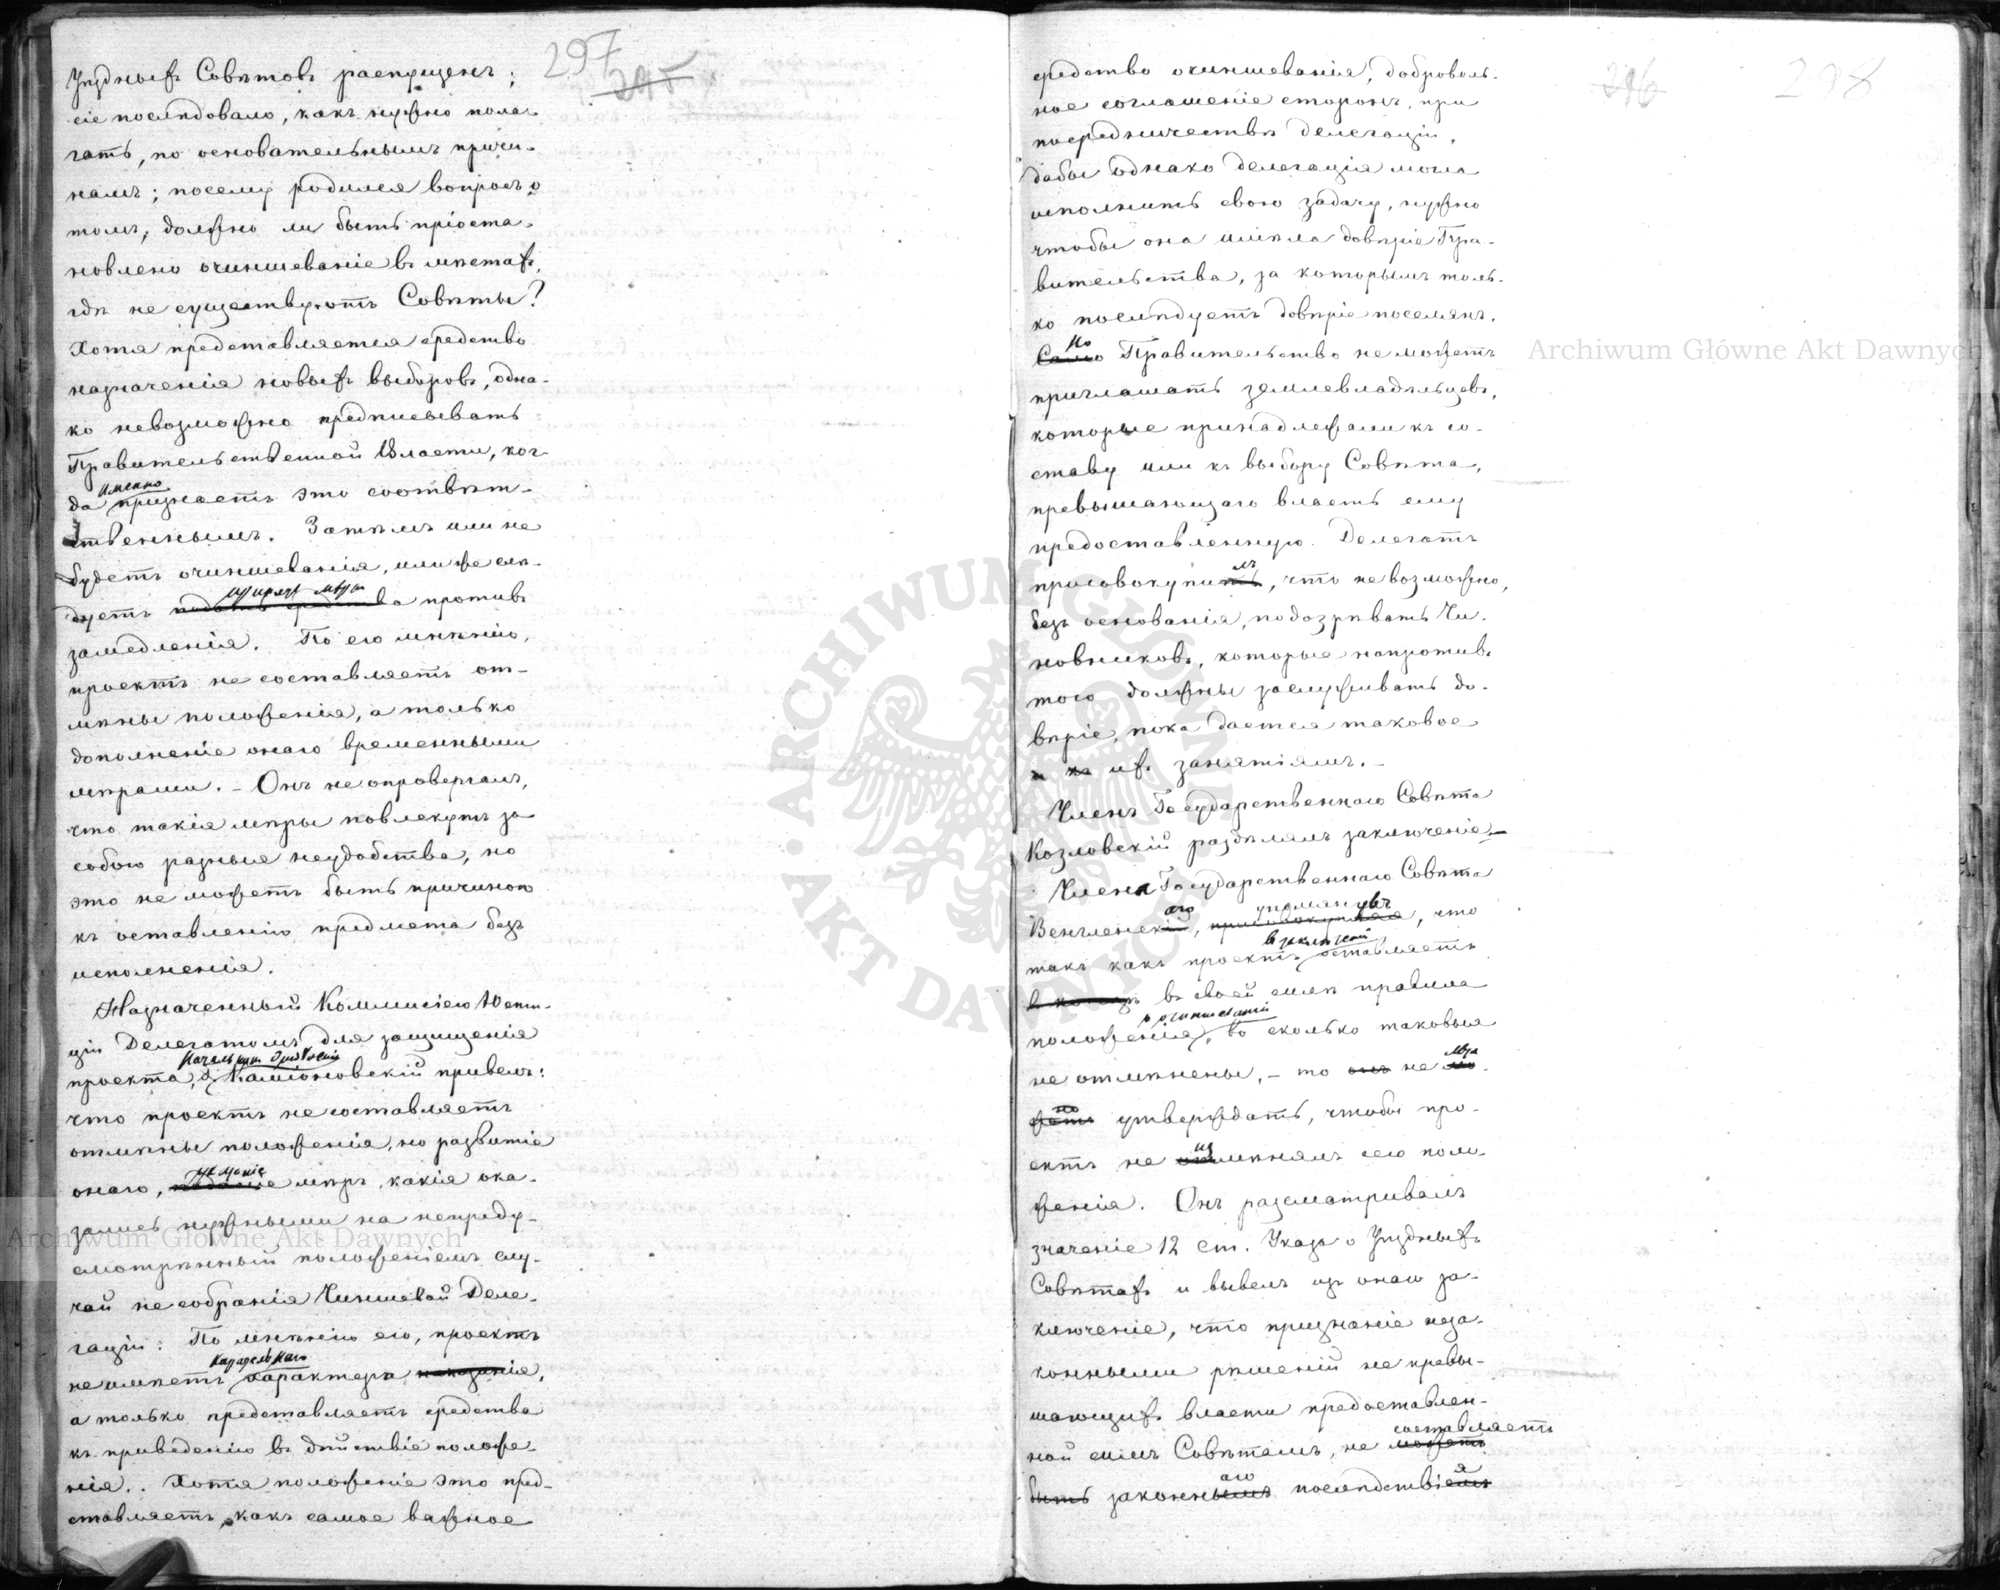 297
245
Уѣздныхъ Совѣтовъ распущенъ;
сіе послѣдовало, какъ нужно пола-
гать, по основательнымъ причи-
намъ; посему родился вопросъ о
томъ, должно ли быть пріоста-
новлено очиншеваніе въ мѣстахъ,
гдѣ не существуютъ Совѣты?
Хотя представляется средство
назначенія новыхъ выборовъ, одна-
ко невозможно предписывать
Правительственной Власти, ког-
именно
да признаетъ это соотвѣт-
ственнымъ. Затѣмъ или не
будетъ очиншеванія, или же слѣ-
дуетъ противъ
замедленія. По его мнѣнію,
проектъ не составляетъ от-
мѣны положенія, а только
дополненіе онаго временными
мѣрами. – Онъ не опровергалъ,
что такія мѣры повлекутъ за
собою разныя неудобства, но
это не можетъ быть причиною
къ оставленію предмета безъ
исполненія.
Назначенный Коммисіею Юсти-
ціи Делегатомъ для защищенія
проекта, Каміоновскій привелъ:
что проектъ не составляетъ
отмѣны положенія, но развитіе
онаго, мѣръ, какія ока-
зались нужными на непреду-
смотрѣнный положеніемъ слу-
чай не собранія Чиншевой Деле-
гаціи: По мнѣнію его, проектъ
карательнаго
не имѣетъ характера наказанія,
а только представляетъ средства
къ приведенію въ дѣйствіе положе-
нія.. Хотя положеніе это пред-
ставляетъ, какъ самое важное
246
298
средство очиншеванія, доброволь-
ное соглашеніе сторонъ, при
посредничествѣ делегаціи,
дабы однако делегація могла
исполнить свою задачу, нужно
чтобы она имѣла довѣріе Пра-
вительства, за которымъ толь-
ко послѣдуетъ довѣріе поселянъ.
Но
Само Правительство не можетъ
приглашать землевладѣльцевъ,
которые принадлежали къ со-
ставу или къ выбору Совѣта,
превышающаго власть ему
предоставленную. Делегатъ
лъ
присовокупитъ, что невозможно,
безъ основанія, подозрѣвать Чи-
новниковъ, которые напротивъ
того должны заслуживать до-
вѣріе, пока дается таковое
и къ ихъ занятіямъ. –
Членъ Государственнаго Совѣта
Козловскій раздѣлялъ заключеніе –
Члена Государственнаго Совѣта
аго упомянувъ
Венгленскій, присовокупляя, что
въ заключеніи
такъ какъ проектъ оставляетъ
въ своей силѣ правила
о очиншеваніи
положенія, во сколько таковыя
не отмѣнены, – то онъ не мо-
жно
жетъ утверждать, чтобы про-
из
ектъ не отмѣнялъ сего поло-
женія. Онъ разсматривалъ
значеніе 12 ст. Указа о Уѣздныхъ
Совѣтахъ и вывелъ изъ онаго за-
ключеніе, что признаніе неза-
конными рѣшеній не превы-
шающихъ власти предоставлен-
составляетъ
ной симъ Совѣтамъ, не можетъ
аго я
быть законнымъ послѣдствіемъ
Archiwum Główne Akt Dawnych
Archiwum Główne Akt Dawnych
ARCHIWUM GŁÓWNE AKT DAWNYCH